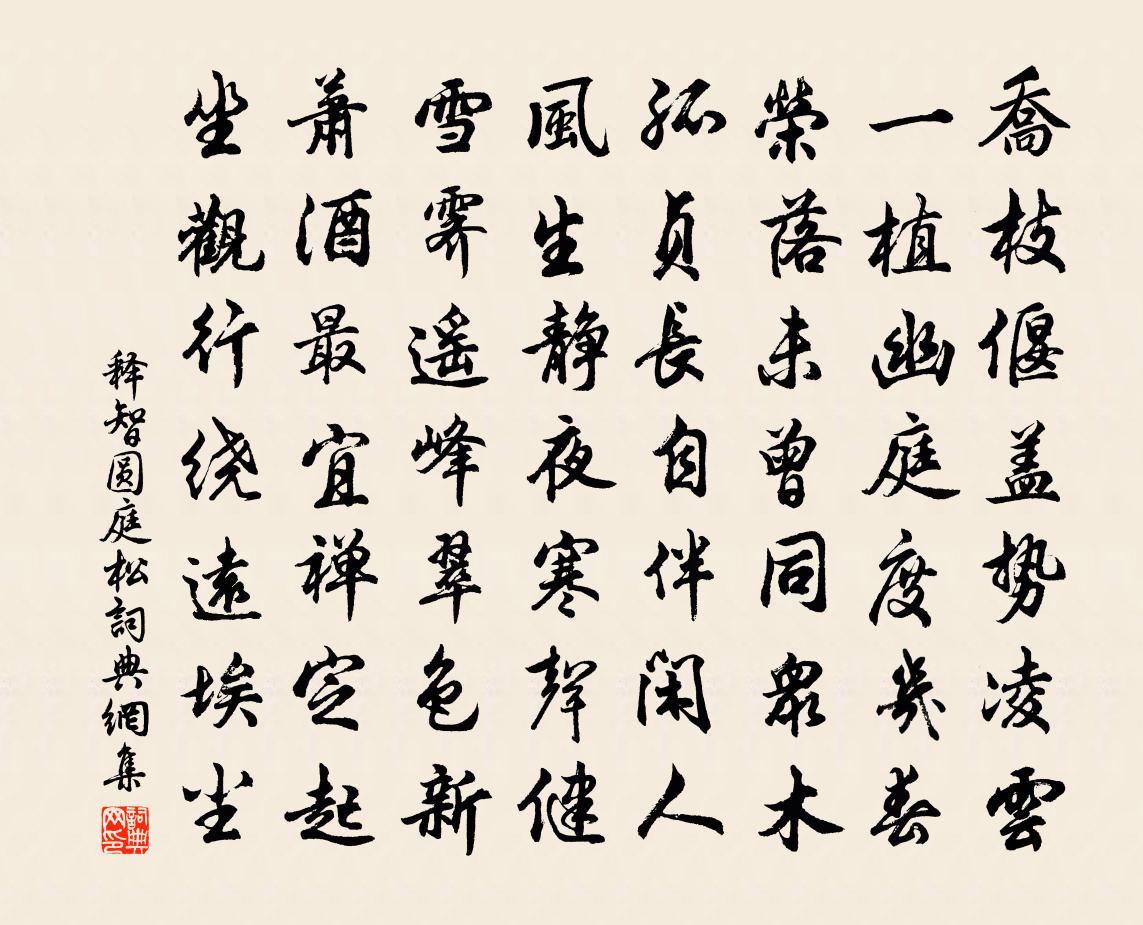 喬枝偃盖勢凌雲
一植幽庭度幾春
榮落未曾同衆木
孤貞長自伴閑人
風生静夜寒聲健
雪霽遥峰翠色新
蕭酒最宜禅定起
坐觀行绕遠埃尘
释智圆庭松詞典網集
詞典网印